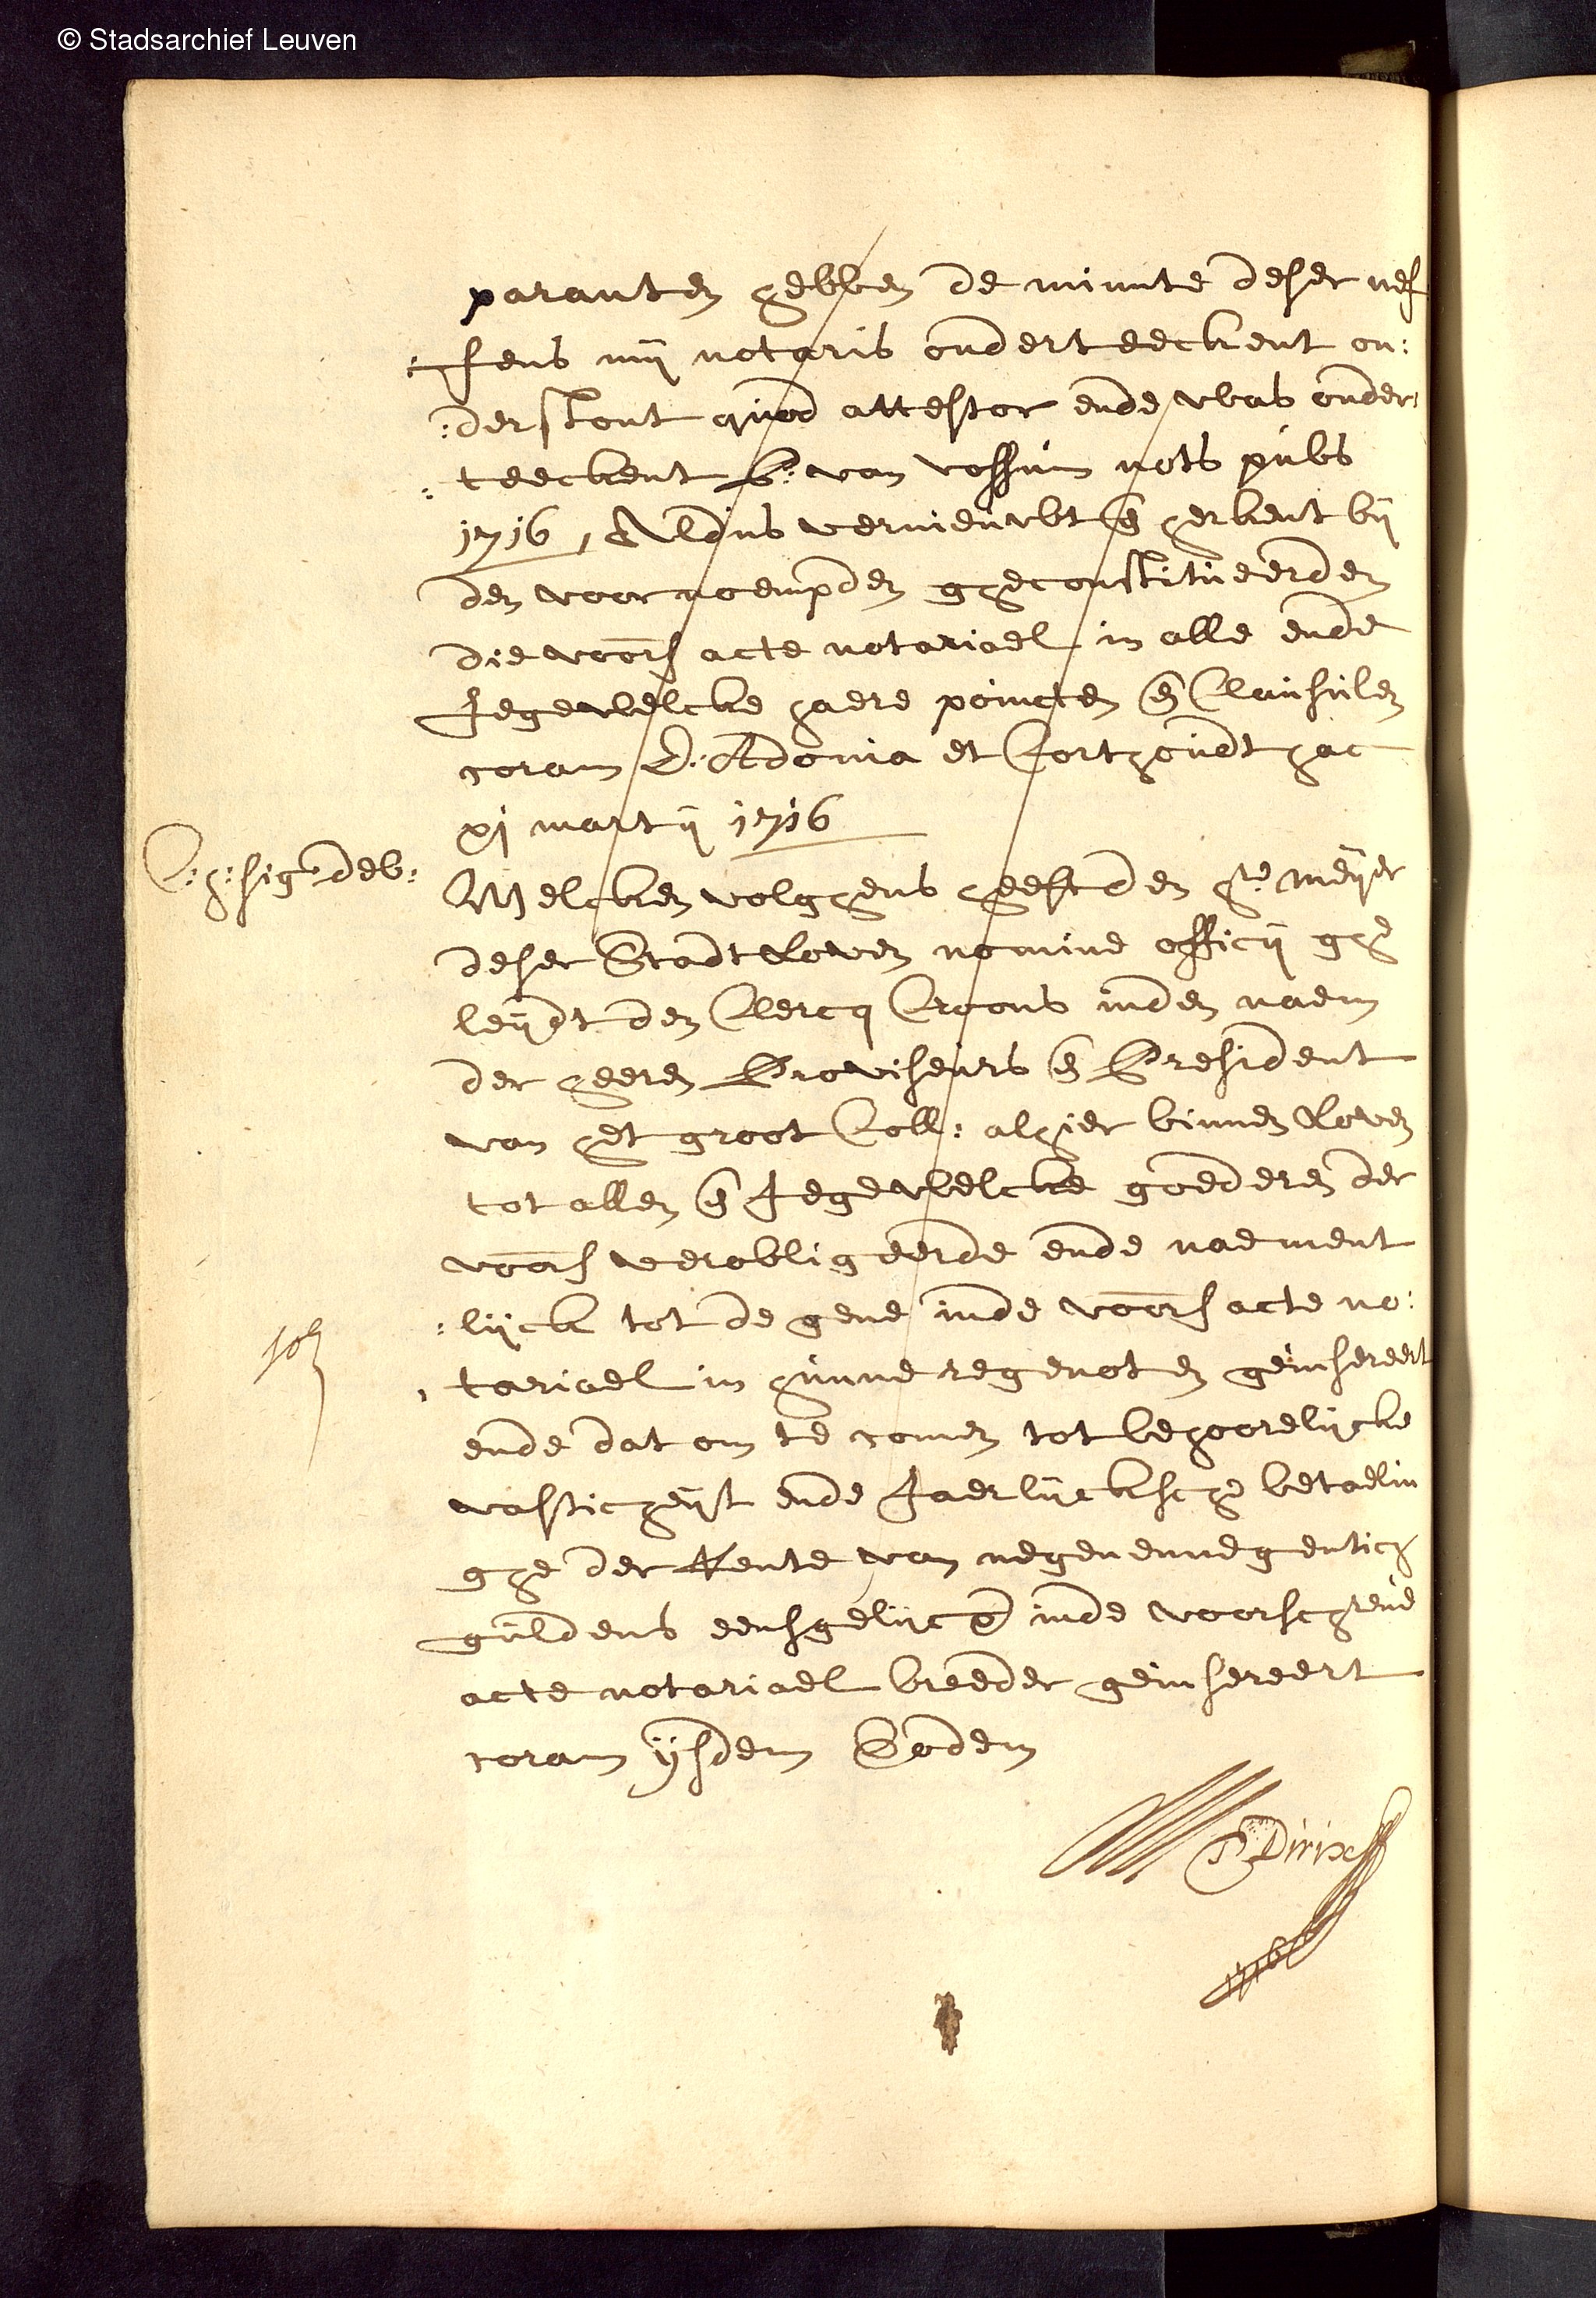 © Stadsarchief Leuven
paranten hebben de minute deser nef
:fens mij notaris onderteeckent on:
:derstont quod attestor ende was onder
:teeckent P: van vossum nots pubs
1716, Aldus vernieuwt en herkent bij
den voornoempden gheconstitueerden
die voors acte notariael in alle ende
Jegewelcke haere poincten en Clausulen
coram D: Adonia et Corthoudt hac
xj martij 1716
Welcken volghens heeft den he meyer
deser Stadt Loven nomine officij ghe
leijdt den Clercq Croons inden naem
der heeren Proviseurs en President
van het groot Coll: alhier binnen Loven
tot allen en Jegewelcke goederen der
voors verobligeerde ende naement
:lijck tot de gene inde voors acte no:
tariael in hunne regenoten geinsereert
ende dat om te comen tot behoorelijcke
vasticheijt ende Jaerlijcksche betaelin
ghe der Rente van negenennegentich
guldens eensgelijck inde voorschreve
acte notariael breeder geinsereert
coram ijsdem Eodem
sig: deb:
P Dirix
1716